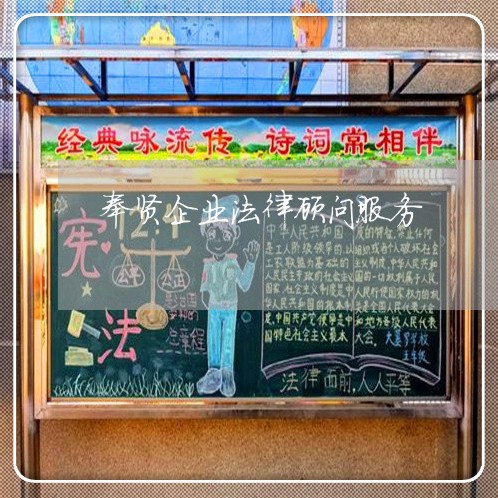 经典咏流传 诗词常相伴
奉贤企业法律顾问服务
宪法
公平
公正
总章程
中华人民共和国
是工人阶级领导的,以
工农联盟为基础的
人民民主专政的社会主义
国家,社会主义制度是中
华人民共和国的根本制
度,中国共产党领导是中
国特色社会主义最本
质的特征,禁止任何
组织或者个人破坏社会
主义制度,中华人民共和
国的一切权利属于人民,
人民行使国家权力的机
关是全国人民代表大会
和地方各级人民代表
大会。
五年级
法律面前,人人平等